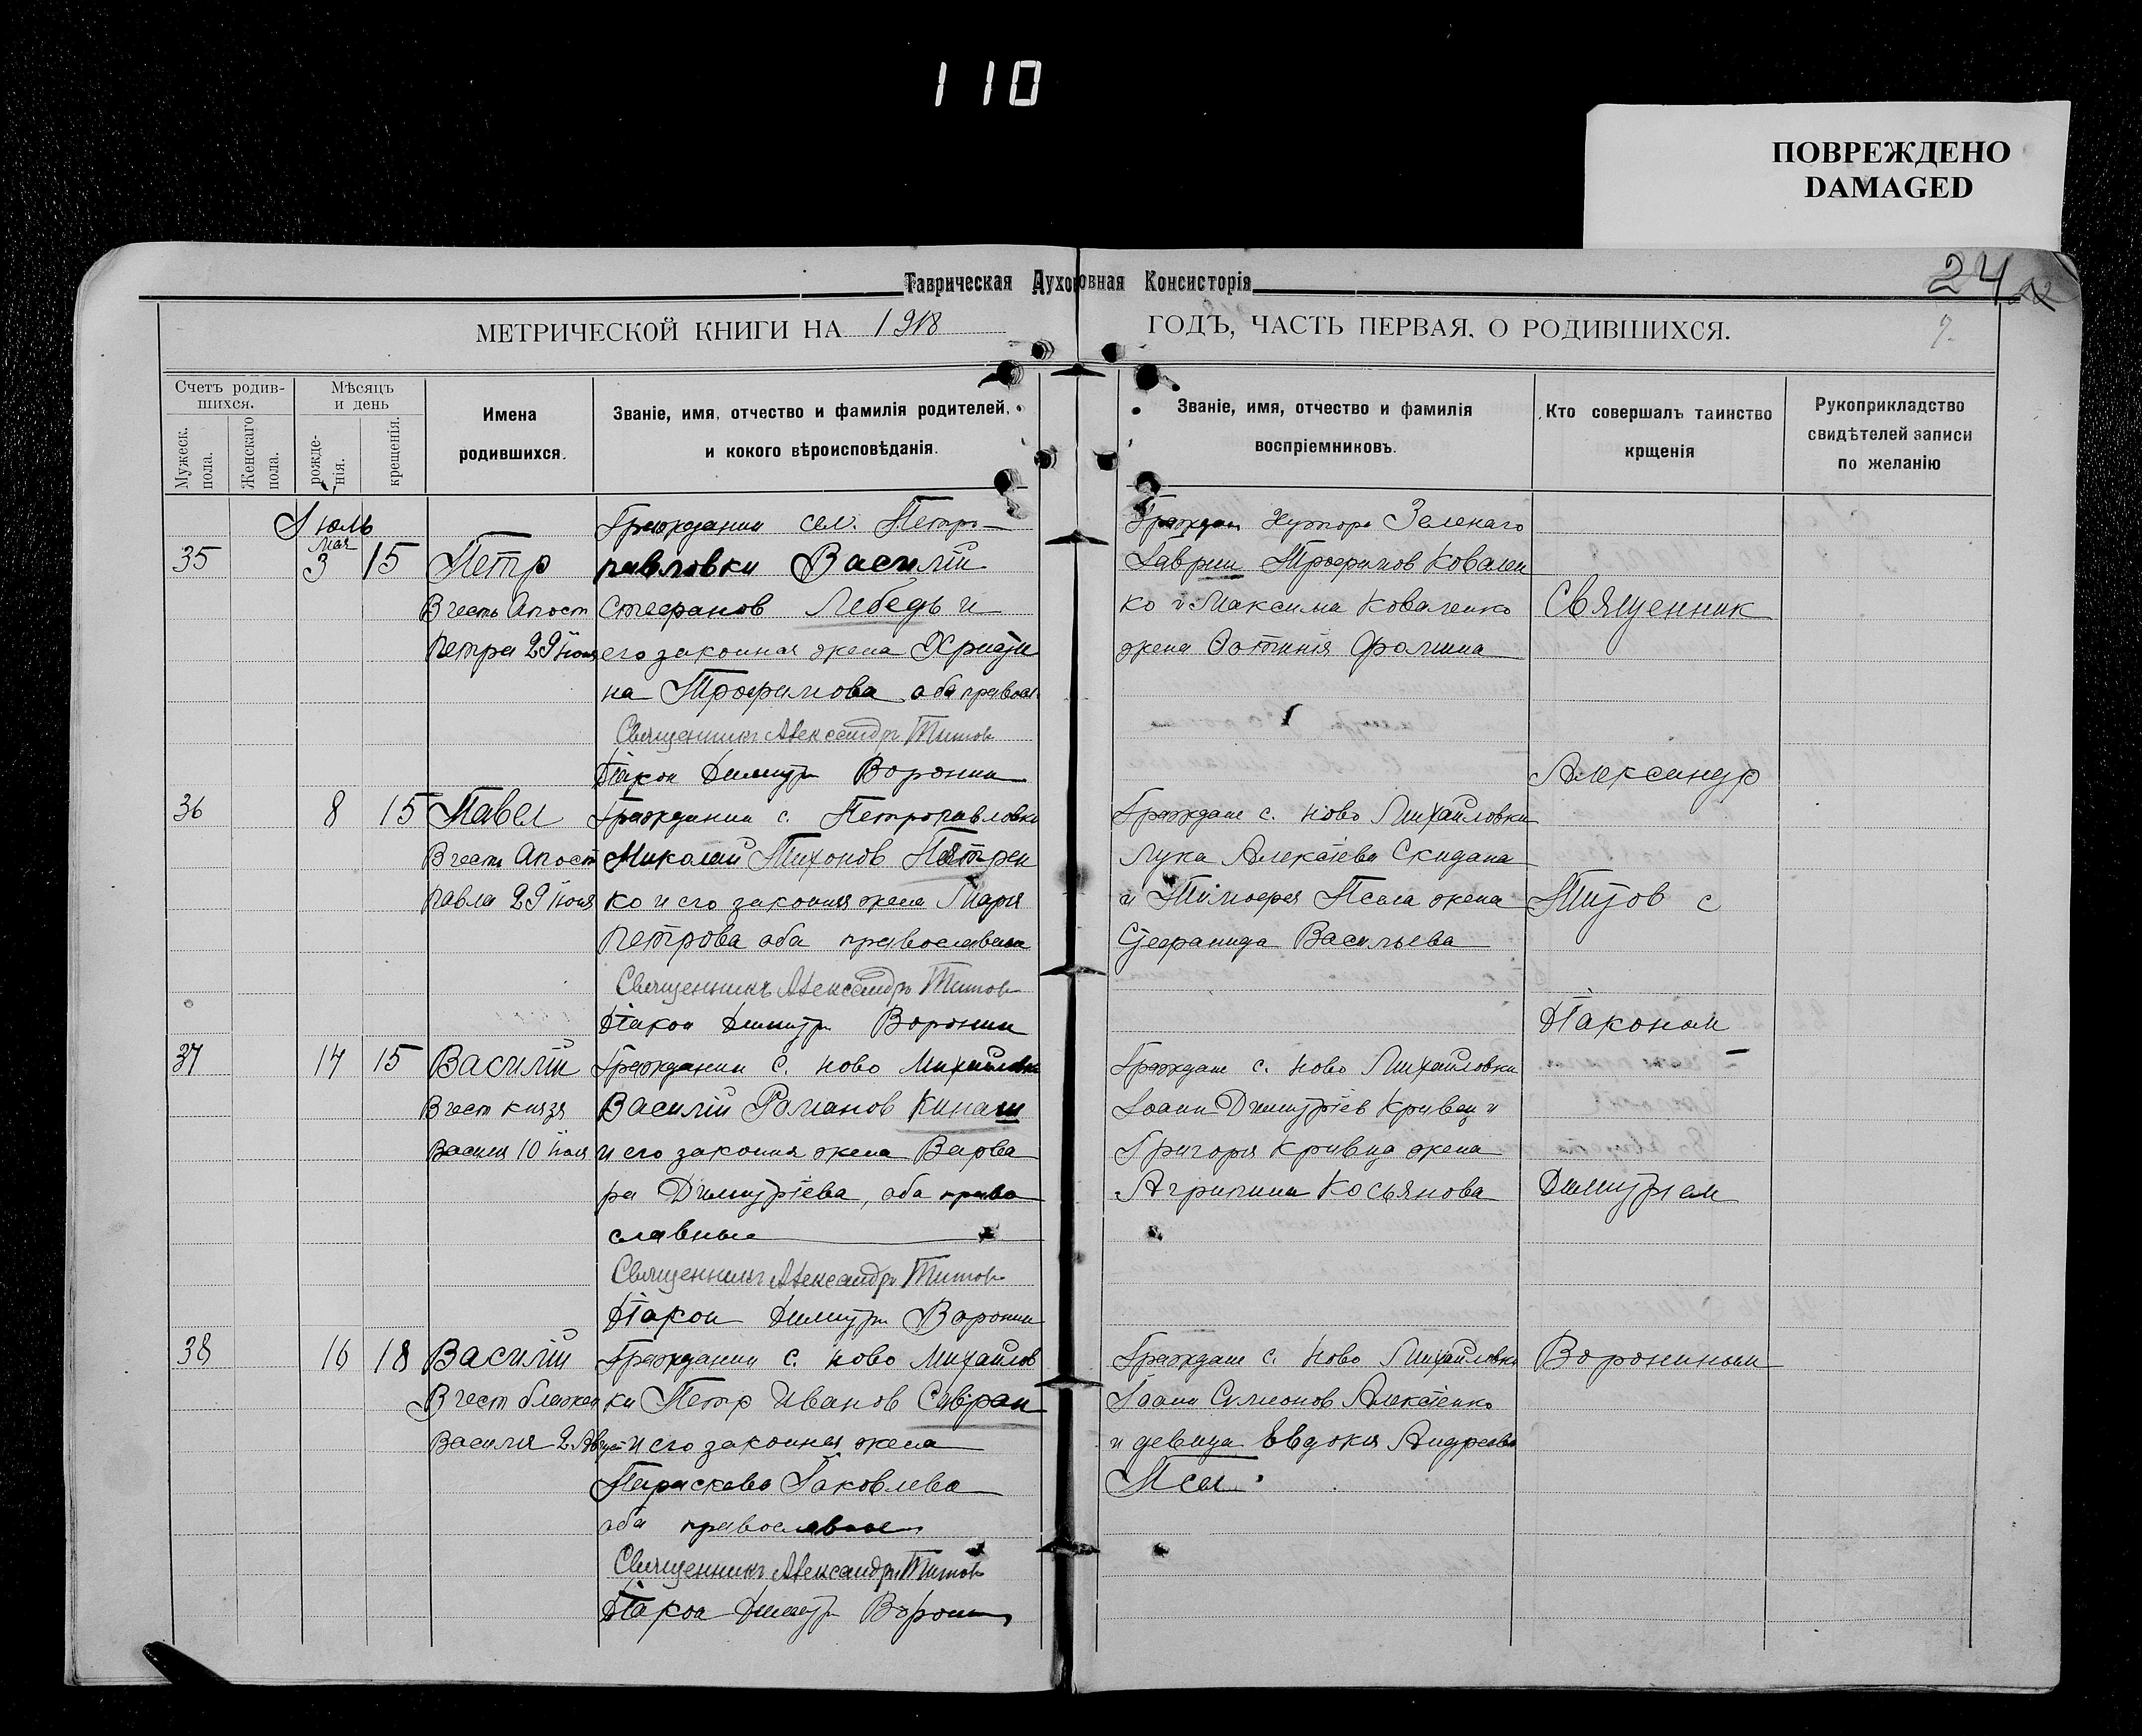 110
ПОВРЕЖДЕНО
DAMAGED
24
Таврическая Духовная Консисторія
МЕТРИЧЕСКОЙ КНИГИ НА 1918 ГОДЪ, ЧАСТЬ ПЕРВАЯ, О РОДИВШИХСЯ.
Счетъ родив-
шихся.
Мужеск.
пола.
Женскаго
пола.
Мѣсяцъ
и день
рожде-
нія.
крещенія.
Имена
родившихся.
Званіе, имя, отчество и фамилія родителей,
и кокого вѣроисповѣданія.
Званіе, имя, отчество и фамилія
воспріемниковъ.
Кто совершалъ таинство
крщенія
Рукоприкладство
свидѣтелей записи
по желанію
Іюль
35
Мая
3
15
Петр
В честь Апост
Петра 29 Іюня
Гражданин сел. Петро-
павловки Василій
Стефанов Лебедь и
его законная жена Христи
на Трофимова оба правосл.
Священникъ Александръ Титовъ
Діакон Димитр Воронин
Граждан хутора Зеленаго
Гавриил Трофимов Ковален
ко и Максима Коваленко
жена Фотинія Фомина
36
8
15
Павел
В честь Апост
Павла 29 Іюня
Гражданин с. Петропавловки
Николай Тихонов Петрен
ко и его законная жена Марія
Петрова оба православные
Священникъ Александръ Титовъ
Діакон Димитр Воронин
Граждане с. Ново Михайловки
Лука Алексіева Скидана
и Тимофея Псела жена
Стефанида Васильева
37
14
15
Василій
В чест князя
Василія 10 Іюля
Гражданин с. Ново Михайловки
Василій Романов Кинаш
и его законная жена Варва
ра Димитріева, оба право
славные
Священникъ Александръ Титовъ
Діакон Димитр Воронин
Граждане с. Ново Михайловки
Іоанн Димитріев Кривец и
Григорія Кривца жена
Агрипина Косьянова
38
16
18
Василій
В чест блажен
Василія 2 Август
Гражданин с. Ново Михайлов
ки Петр Иванов Савран
и его законная жена
Параскева Іаковлева
оба православные
Священникъ Александръ Титовъ
Діакон Димитр Воронин
Граждане с. Ново Михайловки
Іоанн Симеонов Алексіенко
и девица Евдокия Андреева
Псел
Священник
Александр
Титов с
Діаконом
Димитрием
Ворониным